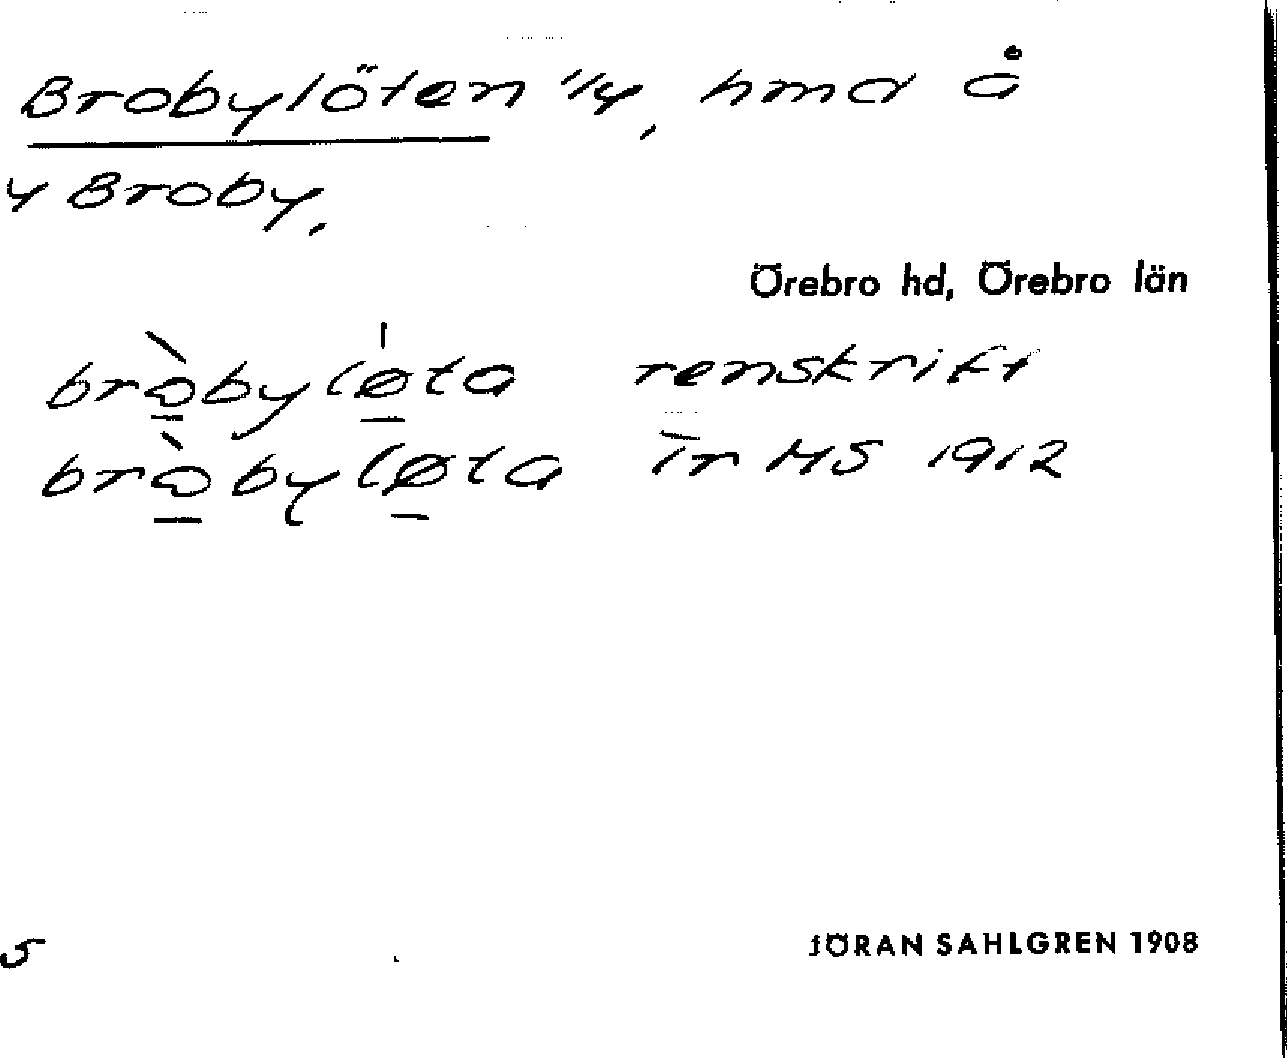 Brobylöten 1/4, hmd å
4 Broby.
Örebro hd, Örebro län
bròbyløta renskrift
bròbyløta ir MS 1912
5
JÖRAN SAHLGREN 1908